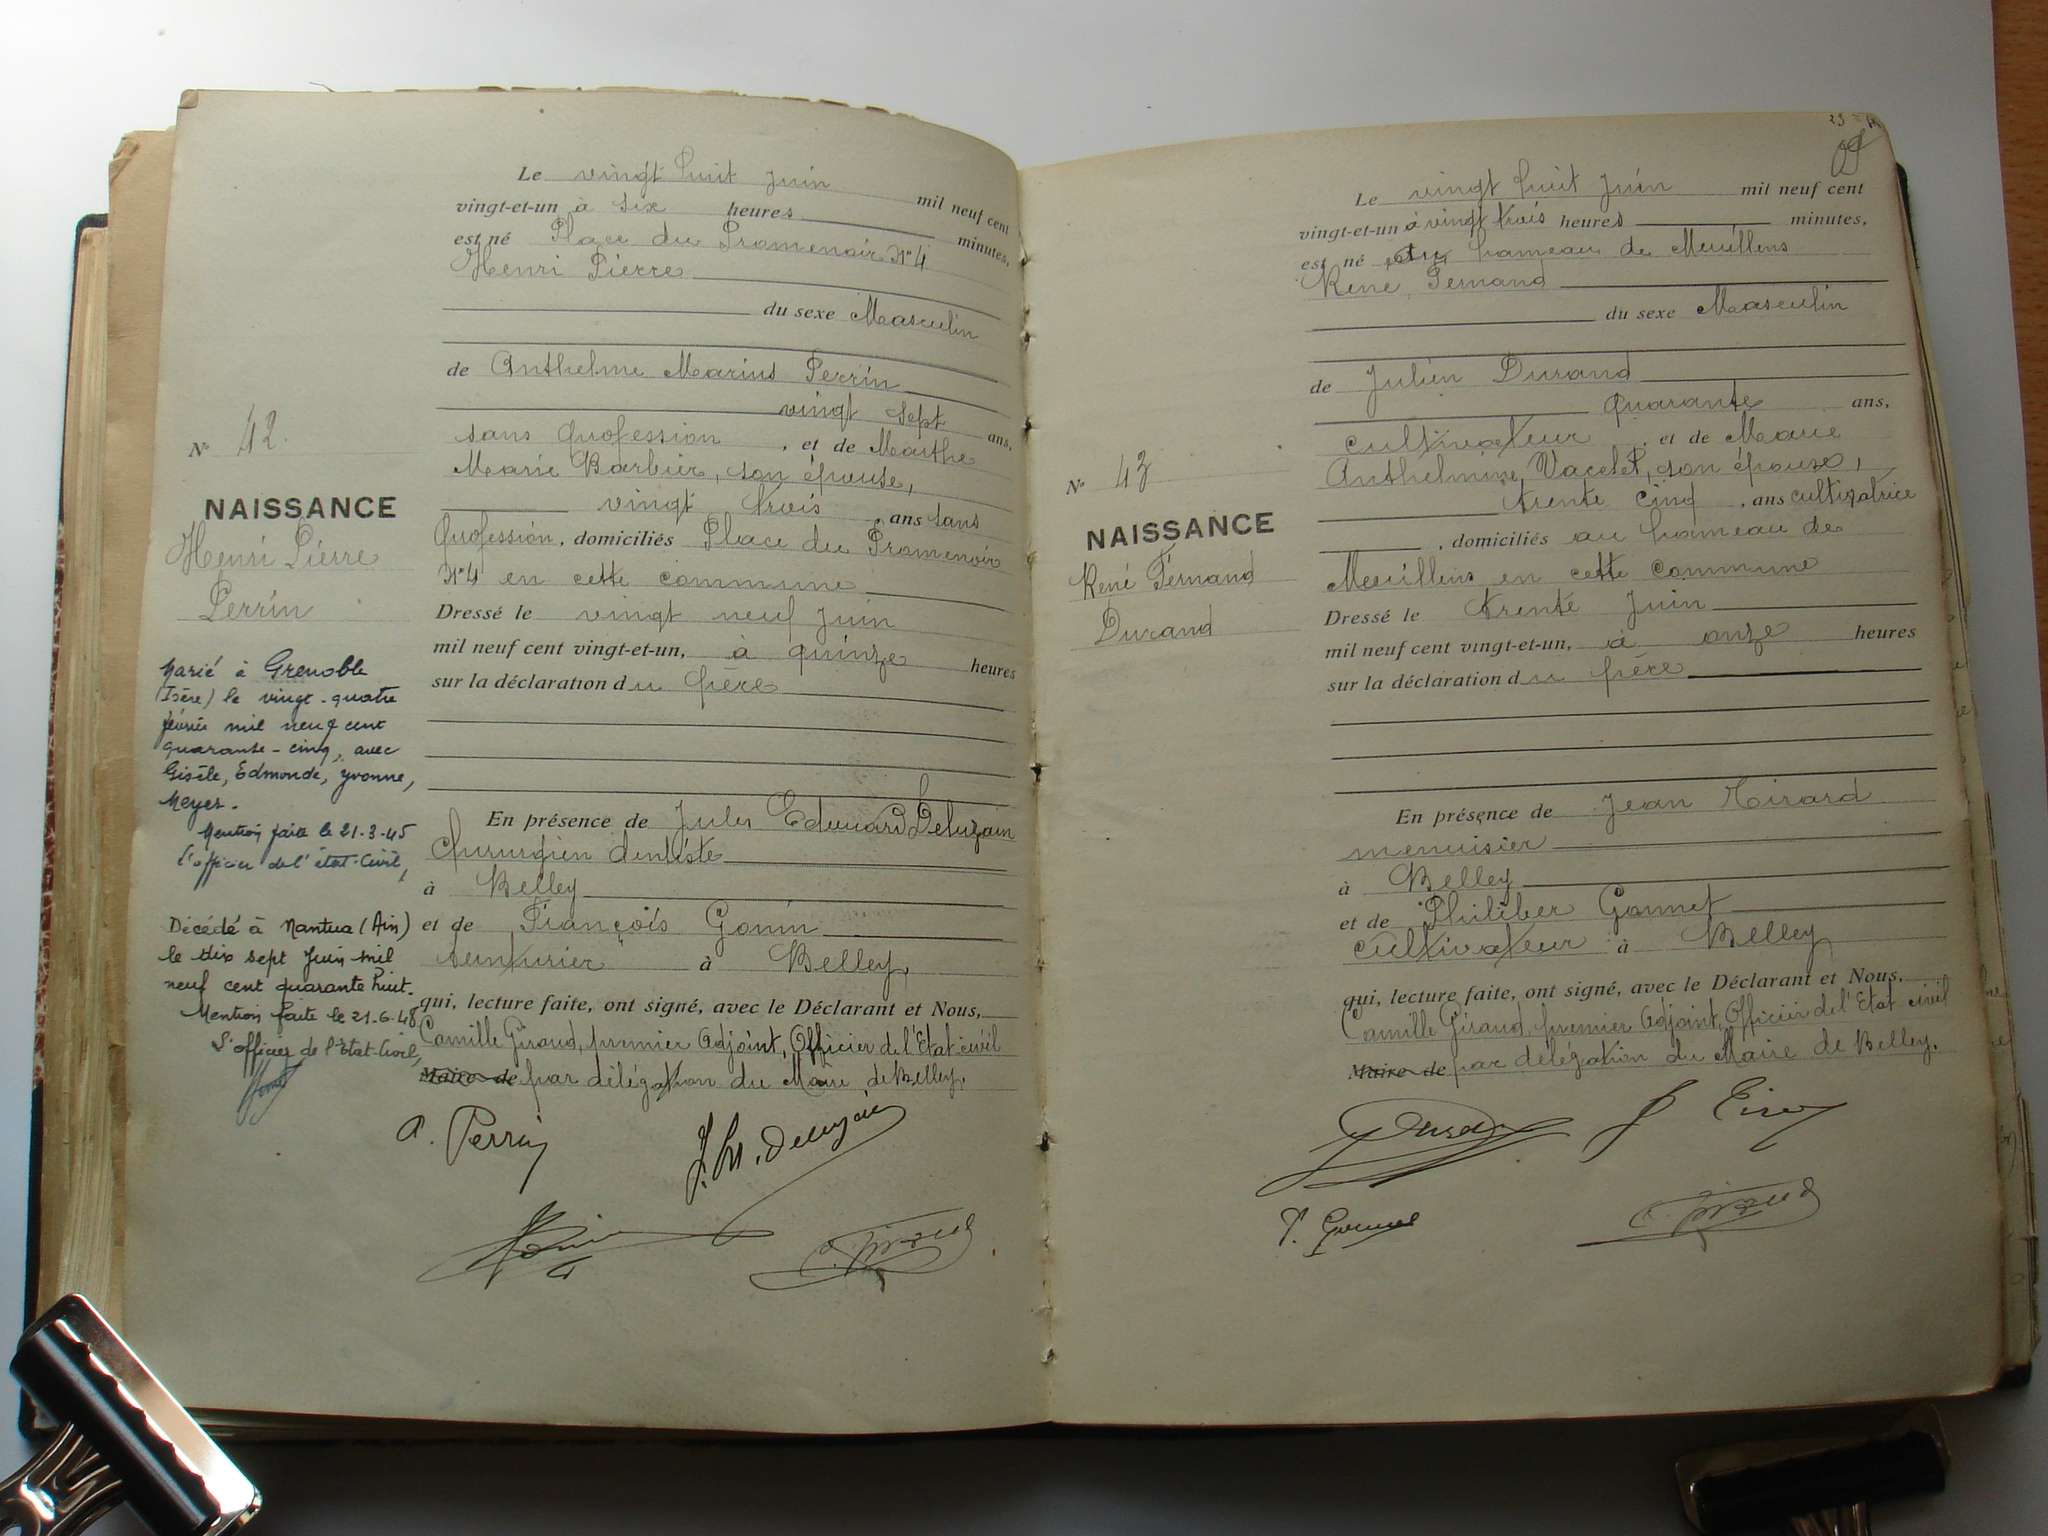 Le vingt huit juin mil neuf cent
vingt-et-un à six heures minutes,
est né Place du Promenoir N°4
Henri Pierre
du sexe Masculin
de Anthelme Marius Perrin
vingt sept ans,
sans profession, et de Marthe
Marie Barbier, son épouse,
vingt trois, ans sans
profession, domiciliés Place du Promenoir
N°4 en cette commune
Dressé le vingt neuf juin
mil neuf cent vingt-et-un, à quinze heures
sur la déclaration du père
En présence de Jules Edouard
Chirurgien dentiste
à Belley
et de François Gonin
à Belley,
qui, lecture faite, ont signé, avec le Déclarant et Nous,
Camille Giraud, premier Adjoint, Officier de l'Etat civil
Maire de par délégation du Maire de Belley,
A. Perrin
N° 42.
NAISSANCE
Henri Pierre
Perrin
Marié à Grenoble
(Isère) le vingt-quatre
février mil neuf cent
quarante-cinq, avec
Gisèle, Edmonde, Yvonne,
Meyer.
Mention faite le 21-3-45
l'officier de l'état-civil,
Décédé à Nantua (Ain)
le dix sept Juin mil
neuf cent quarante huit.
Mention faite le 21-6-48
L'officier de l'Etat-Civil,
Le vingt huit juin mil neuf cent
vingt-et-un à vingt trois heures minutes,
est né hameau de
René Fernand
du sexe Masculin
de Julien Durand
quarante ans,
cultivateur, et de Marie
Anthelmine, son épouse,
trente cinq, ans cultivatrice
, domiciliés au hameau de
en cette commune
Dressé le trente juin
mil neuf cent vingt-et-un, à onze heures
sur la déclaration du père
En présence de Jean
menuisier
à Belley
et de Philiber Gonnet
cultivateur à Belley
qui, lecture faite, ont signé, avec le Déclarant et Nous,
Camille Giraud, premier Adjoint, Officier de l'Etat civil
Maire de par délégation du Maire de Belley.
N° 43
NAISSANCE
René Fernand
Durand